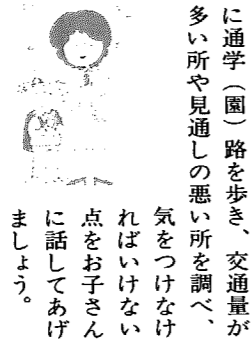 に通学（園）路を歩き、交通量が
多い所や見通しの悪い所を調べ、
気をつけなけ
ればいけない
点をお子さん
に話してあげ
ましょう。